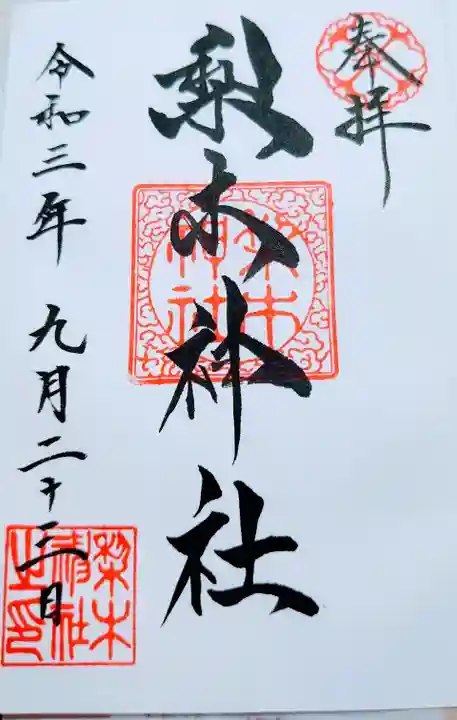 奉拝
梨木神社
令和三年 九月二十三日
梨木
神社
梨木
神社
之印